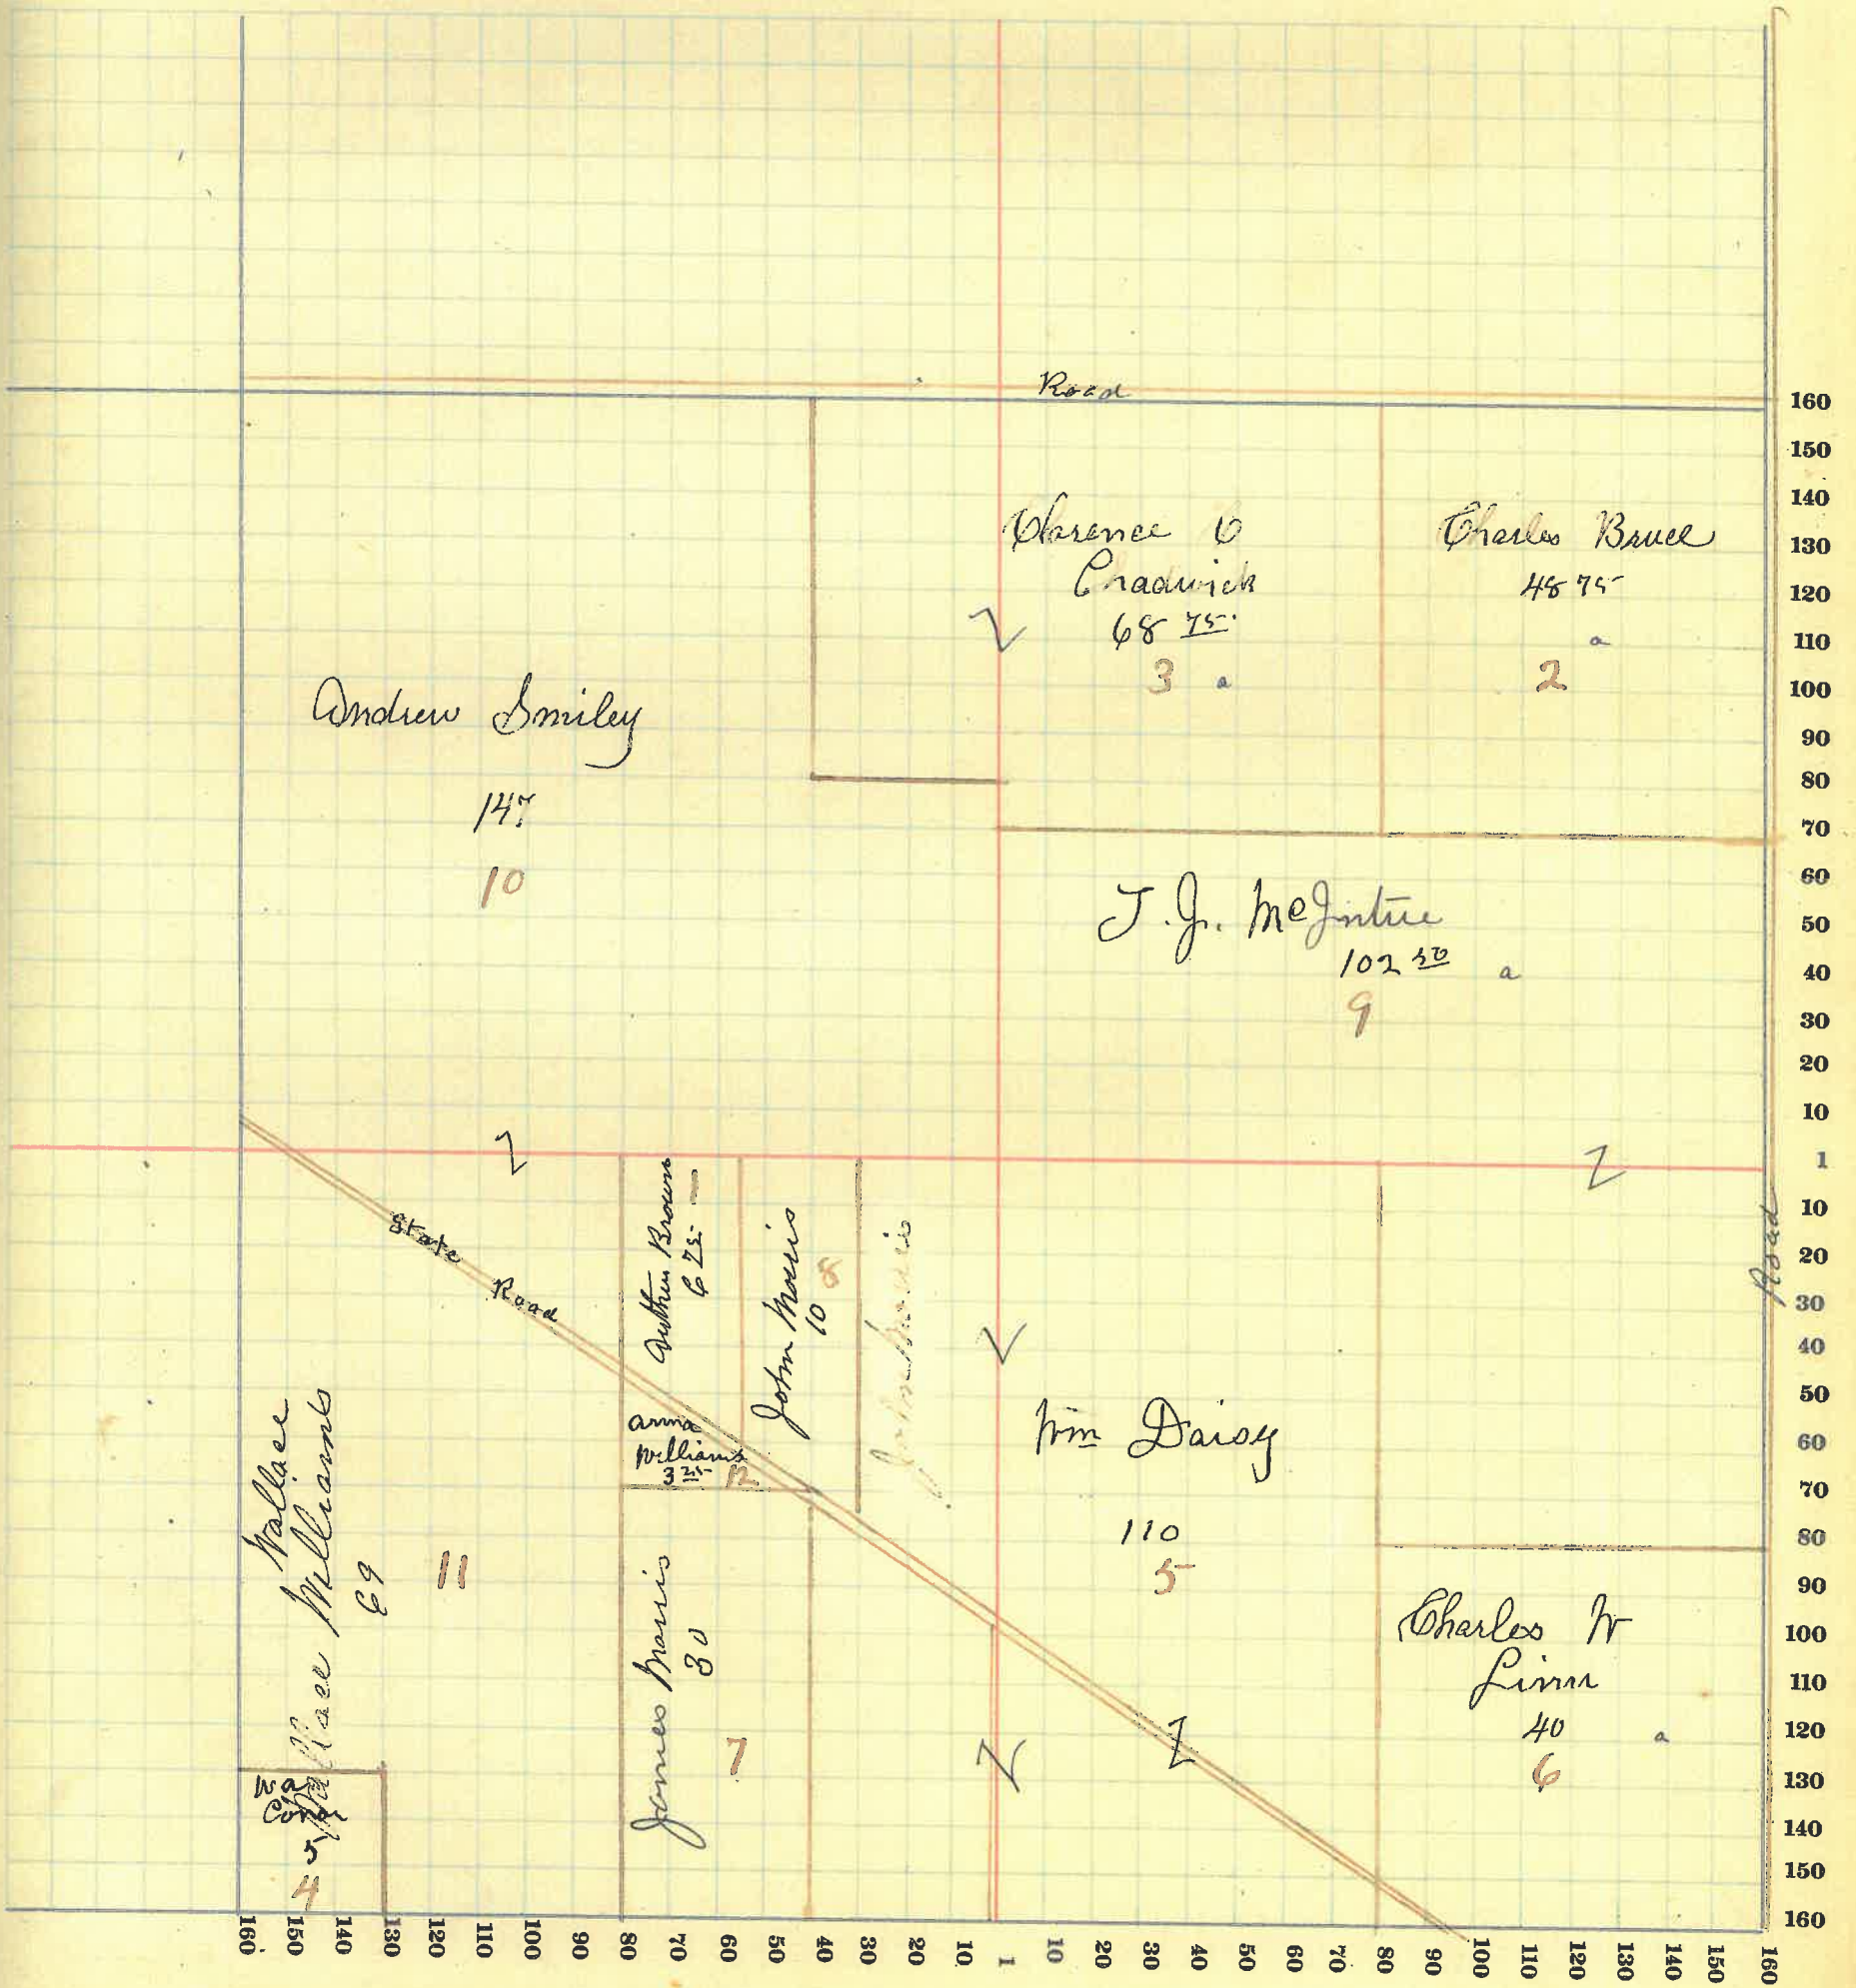 Road
Clarence C
Chadwick
68 75
3 a
Charles Bruce
48 75
a
2
Andrew Smiley
147
10
T. J. McIntire
102 50 a
9
State Road
Arthur Brown
6 75
John Morris
10
8
John Morris
Anna
Williams
3 25
12
Wm Daisy
110
5
Road
Wallace
Williams
69
11
Wallace
James Morris
30
7
Charles W
Linn
40 a
6
Wa
5
4
160
150
140
130
120
110
100
90
80
70
60
50
40
30
20
10
1
10
20
30
40
50
60
70
80
90
100
110
120
130
140
150
160
160 150 140 130 120 110 100 90 80 70 60 50 40 30 20 10 1 10 20 30 40 50 60 70 80 90 100 110 120 130 140 150 160